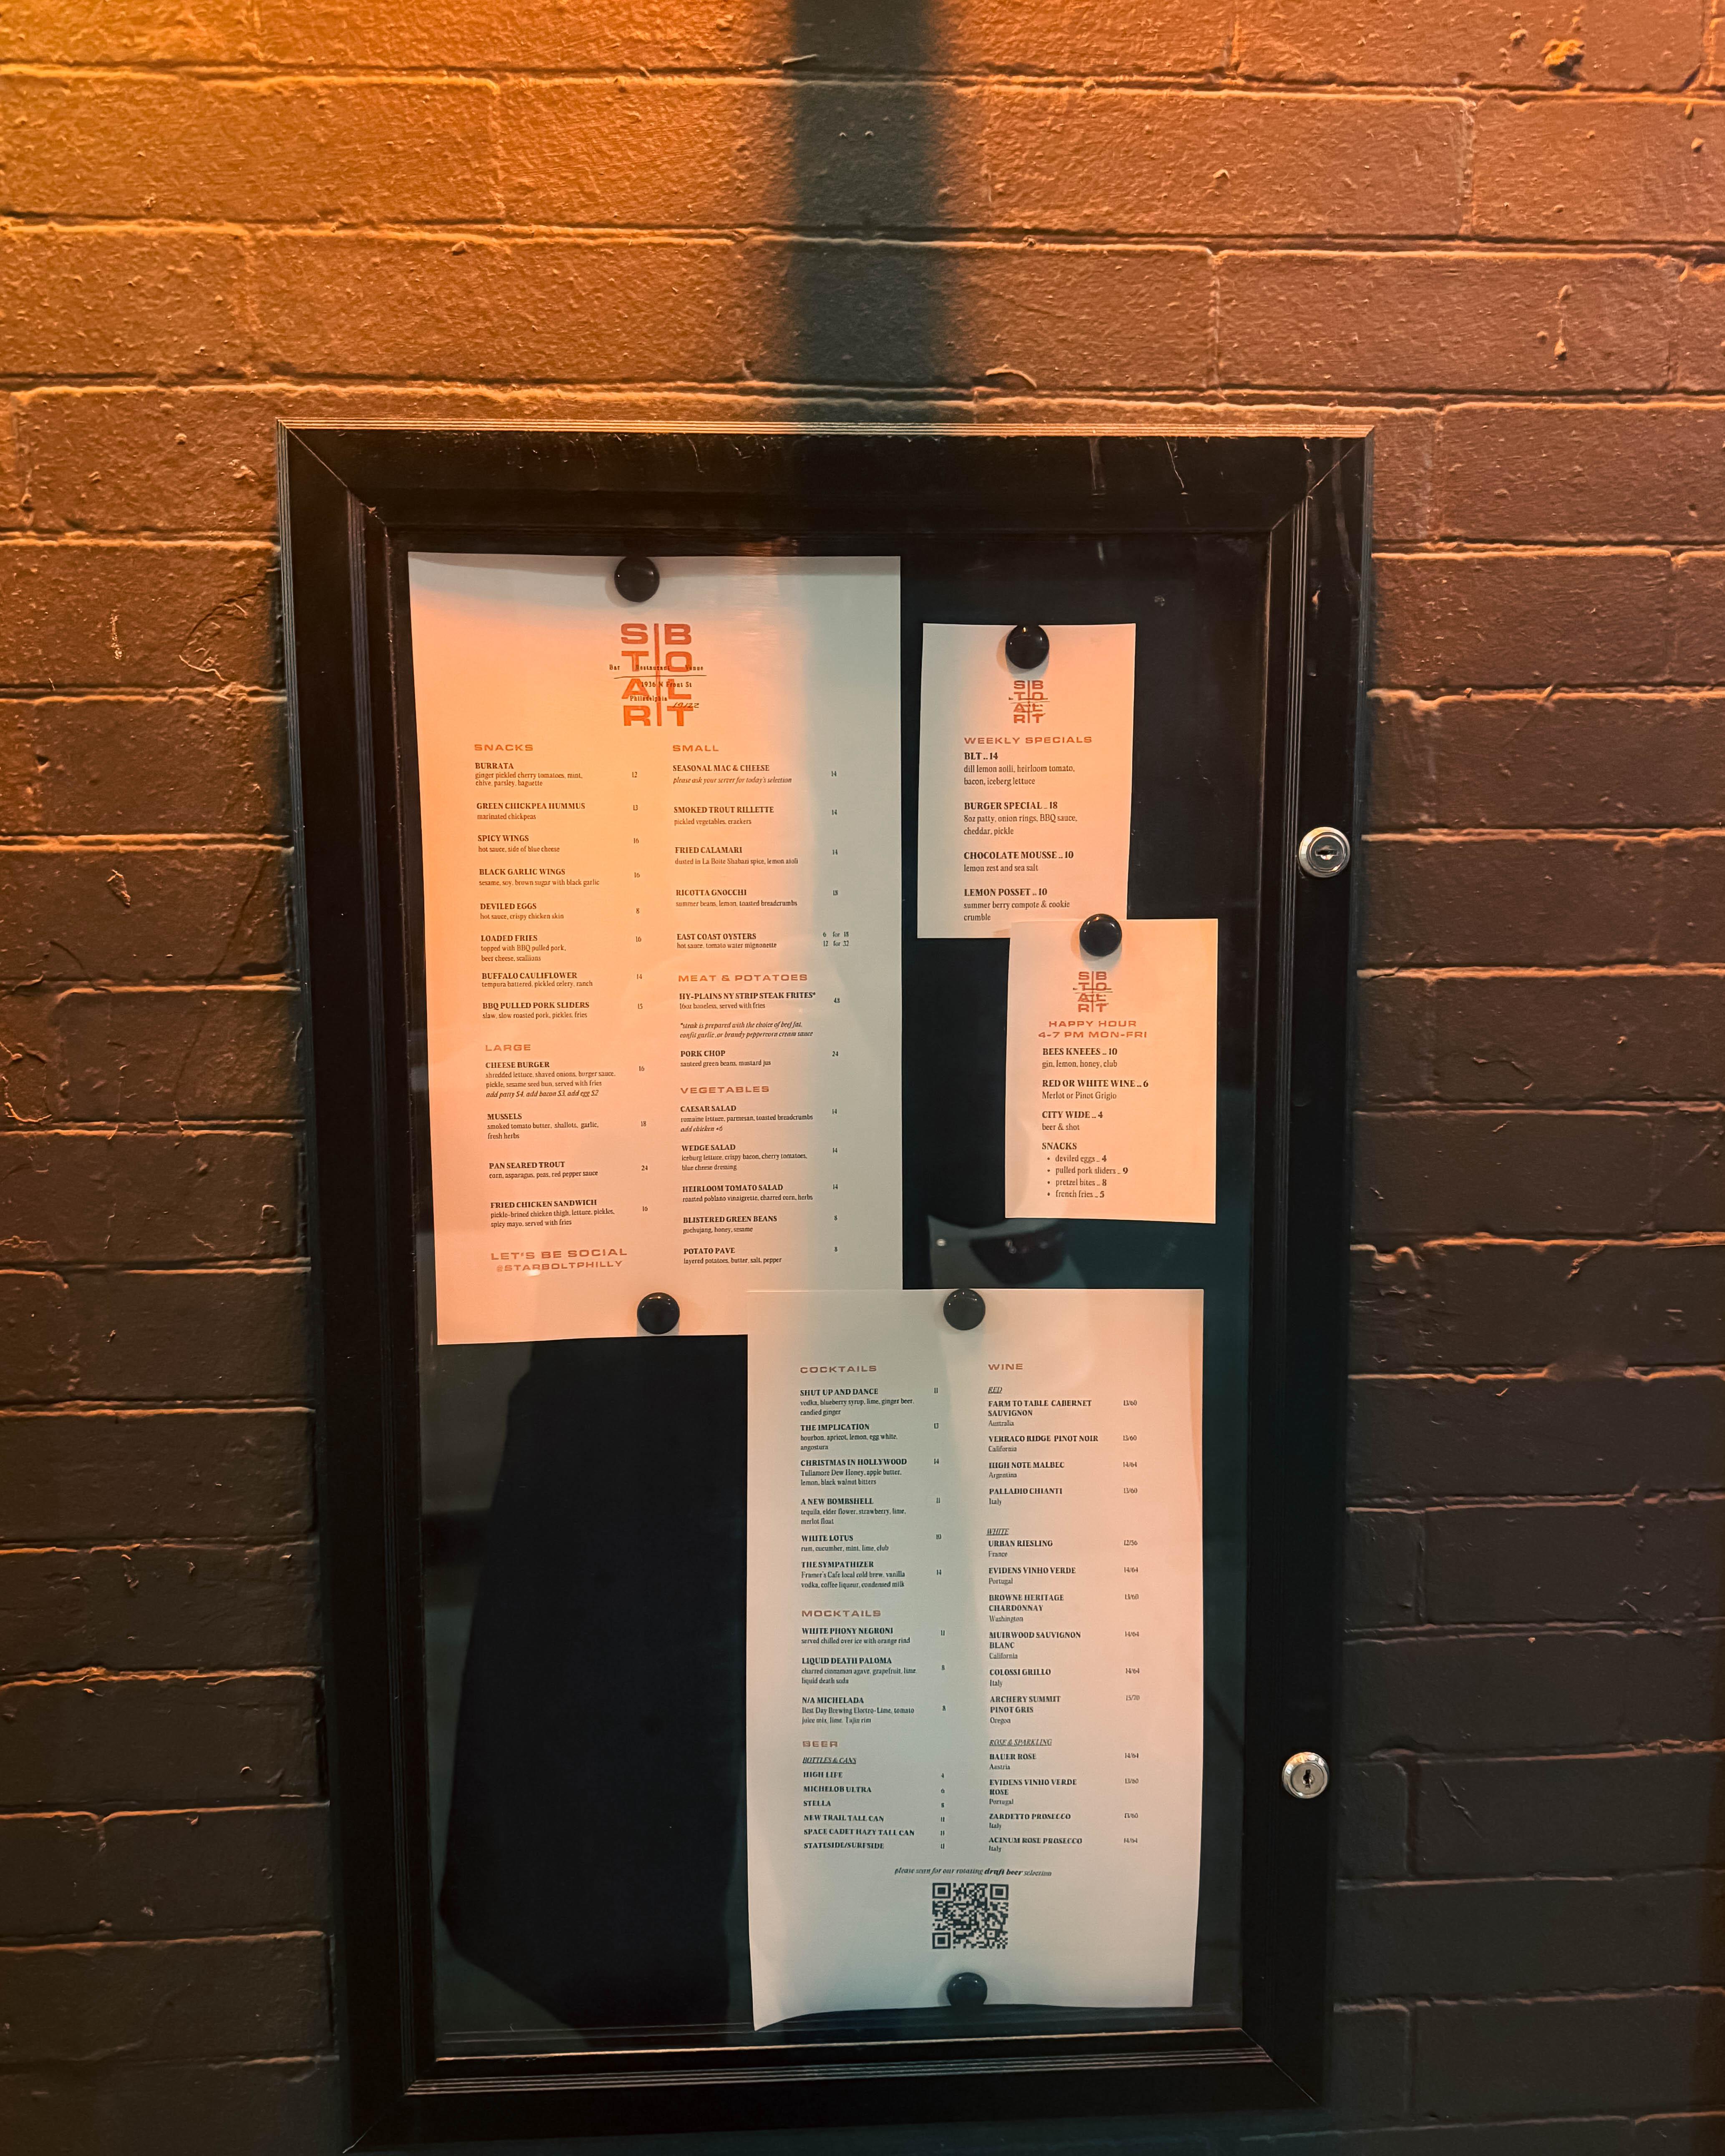 S B
T O
A L
R T
Bar Restaurant Venue
1936 N Front St
Philadelphia
19122
SNACKS
BURRATA 12
ginger pickled cherry tomatoes, mint,
chive, parsley, baguette
GREEN CHICKPEA HUMMUS 13
marinated chickpeas
SPICY WINGS 16
hot sauce, side of blue cheese
BLACK GARLIC WINGS 16
sesame, soy, brown sugar with black garlic
DEVILED EGGS 8
hot sauce, crispy chicken skin
LOADED FRIES 16
topped with BBQ pulled pork,
beer cheese, scallions
BUFFALO CAULIFLOWER 14
tempura battered, pickled celery, ranch
BBQ PULLED PORK SLIDERS 15
slaw, slow roasted pork, pickles, fries
LARGE
CHEESE BURGER 16
shredded lettuce, shaved onions, burger sauce,
pickle, sesame seed bun, served with fries
add patty $4, add bacon $3, add egg $2
MUSSELS 18
smoked tomato butter, shallots, garlic,
fresh herbs
PAN SEARED TROUT 24
corn, asparagus, peas, red pepper sauce
FRIED CHICKEN SANDWICH 16
pickle-brined chicken thigh, lettuce, pickles,
spicy mayo, served with fries
LET'S BE SOCIAL
@STARBOLTPHILLY
SMALL
SEASONAL MAC & CHEESE 14
please ask your server for today's selection
SMOKED TROUT RILLETTE 14
pickled vegetables, crackers
FRIED CALAMARI 14
dusted in La Boite Shabazi spice, lemon aioli
RICOTTA GNOCCHI 18
summer beans, lemon, toasted breadcrumbs
EAST COAST OYSTERS 6 for 18
hot sauce, tomato water mignonette 12 for 32
MEAT & POTATOES
HY-PLAINS NY STRIP STEAK FRITES* 48
16oz boneless, served with fries
*steak is prepared with the choice of beef fat,
confit garlic, or brandy peppercorn cream sauce
PORK CHOP 24
sauteed green beans, mustard jus
VEGETABLES
CAESAR SALAD 14
romaine lettuce, parmesan, toasted breadcrumbs
add chicken +6
WEDGE SALAD 14
iceburg lettuce, crispy bacon, cherry tomatoes,
blue cheese dressing
HEIRLOOM TOMATO SALAD 14
roasted poblano vinaigrette, charred corn, herbs
BLISTERED GREEN BEANS 8
gochujang, honey, sesame
POTATO PAVE 8
layered potatoes, butter, salt, pepper
S B
T O
A L
R T
WEEKLY SPECIALS
BLT .. 14
dill lemon aoili, heirloom tomato,
bacon, iceberg lettuce
BURGER SPECIAL .. 18
8oz patty, onion rings, BBQ sauce,
cheddar, pickle
CHOCOLATE MOUSSE .. 10
lemon zest and sea salt
LEMON POSSET .. 10
summer berry compote & cookie
crumble
S B
T O
A L
R T
HAPPY HOUR
4-7 PM MON-FRI
BEES KNEEES .. 10
gin, lemon, honey, club
RED OR WHITE WINE .. 6
Merlot or Pinot Grigio
CITY WIDE .. 4
beer & shot
SNACKS
• deviled eggs .. 4
• pulled pork sliders .. 9
• pretzel bites .. 8
• french fries .. 5
COCKTAILS
SHUT UP AND DANCE
vodka, blueberry syrup, lime, ginger beer,
candied ginger
THE IMPLICATION
bourbon, apricot, lemon, egg white,
angostura
CHRISTMAS IN HOLLYWOOD 14
Tullamore Dew Honey, apple butter,
lemon, black walnut bitters
A NEW BOMBSHELL
tequila, elder flower, strawberry, lime,
merlot float
WHITE LOTUS
rum, cucumber, mint, lime, club
THE SYMPATHIZER 14
Framer's Cafe local cold brew, vanilla
vodka, coffee liqueur, condensed milk
MOCKTAILS
WHITE PHONY NEGRONI 11
served chilled over ice with orange rind
LIQUID DEATH PALOMA 8
charred cinnamon agave, grapefruit, lime
liquid death soda
N/A MICHELADA 8
Best Day Brewing Electro-Lime, tomato
juice mix, lime, Tajin rim
BEER
BOTTLES & CANS
HIGH LIFE 4
MICHELOB ULTRA 6
STELLA 8
NEW TRAIL TALL CAN 11
SPACE CADET HAZY TALL CAN 11
STATESIDE/SURFSIDE 11
WINE
RED
FARM TO TABLE CABERNET 13/60
SAUVIGNON
Australia
VERRACO RIDGE PINOT NOIR 13/60
California
HIGH NOTE MALBEC 14/64
Argentina
PALLADIO CHIANTI 13/60
Italy
WHITE
URBAN RIESLING 12/56
France
EVIDENS VINHO VERDE 14/64
Portugal
BROWNE HERITAGE 13/60
CHARDONNAY
Washington
MUIRWOOD SAUVIGNON 14/64
BLANC
California
COLOSSI GRILLO 14/64
Italy
ARCHERY SUMMIT 15/70
PINOT GRIS
Oregon
ROSE & SPARKLING
BAUER ROSE 14/64
Austria
EVIDENS VINHO VERDE 13/60
ROSE
Portugal
ZARDETTO PROSECCO 13/60
Italy
ACINUM ROSE PROSECCO 14/64
Italy
please scan for our rotating draft beer selection